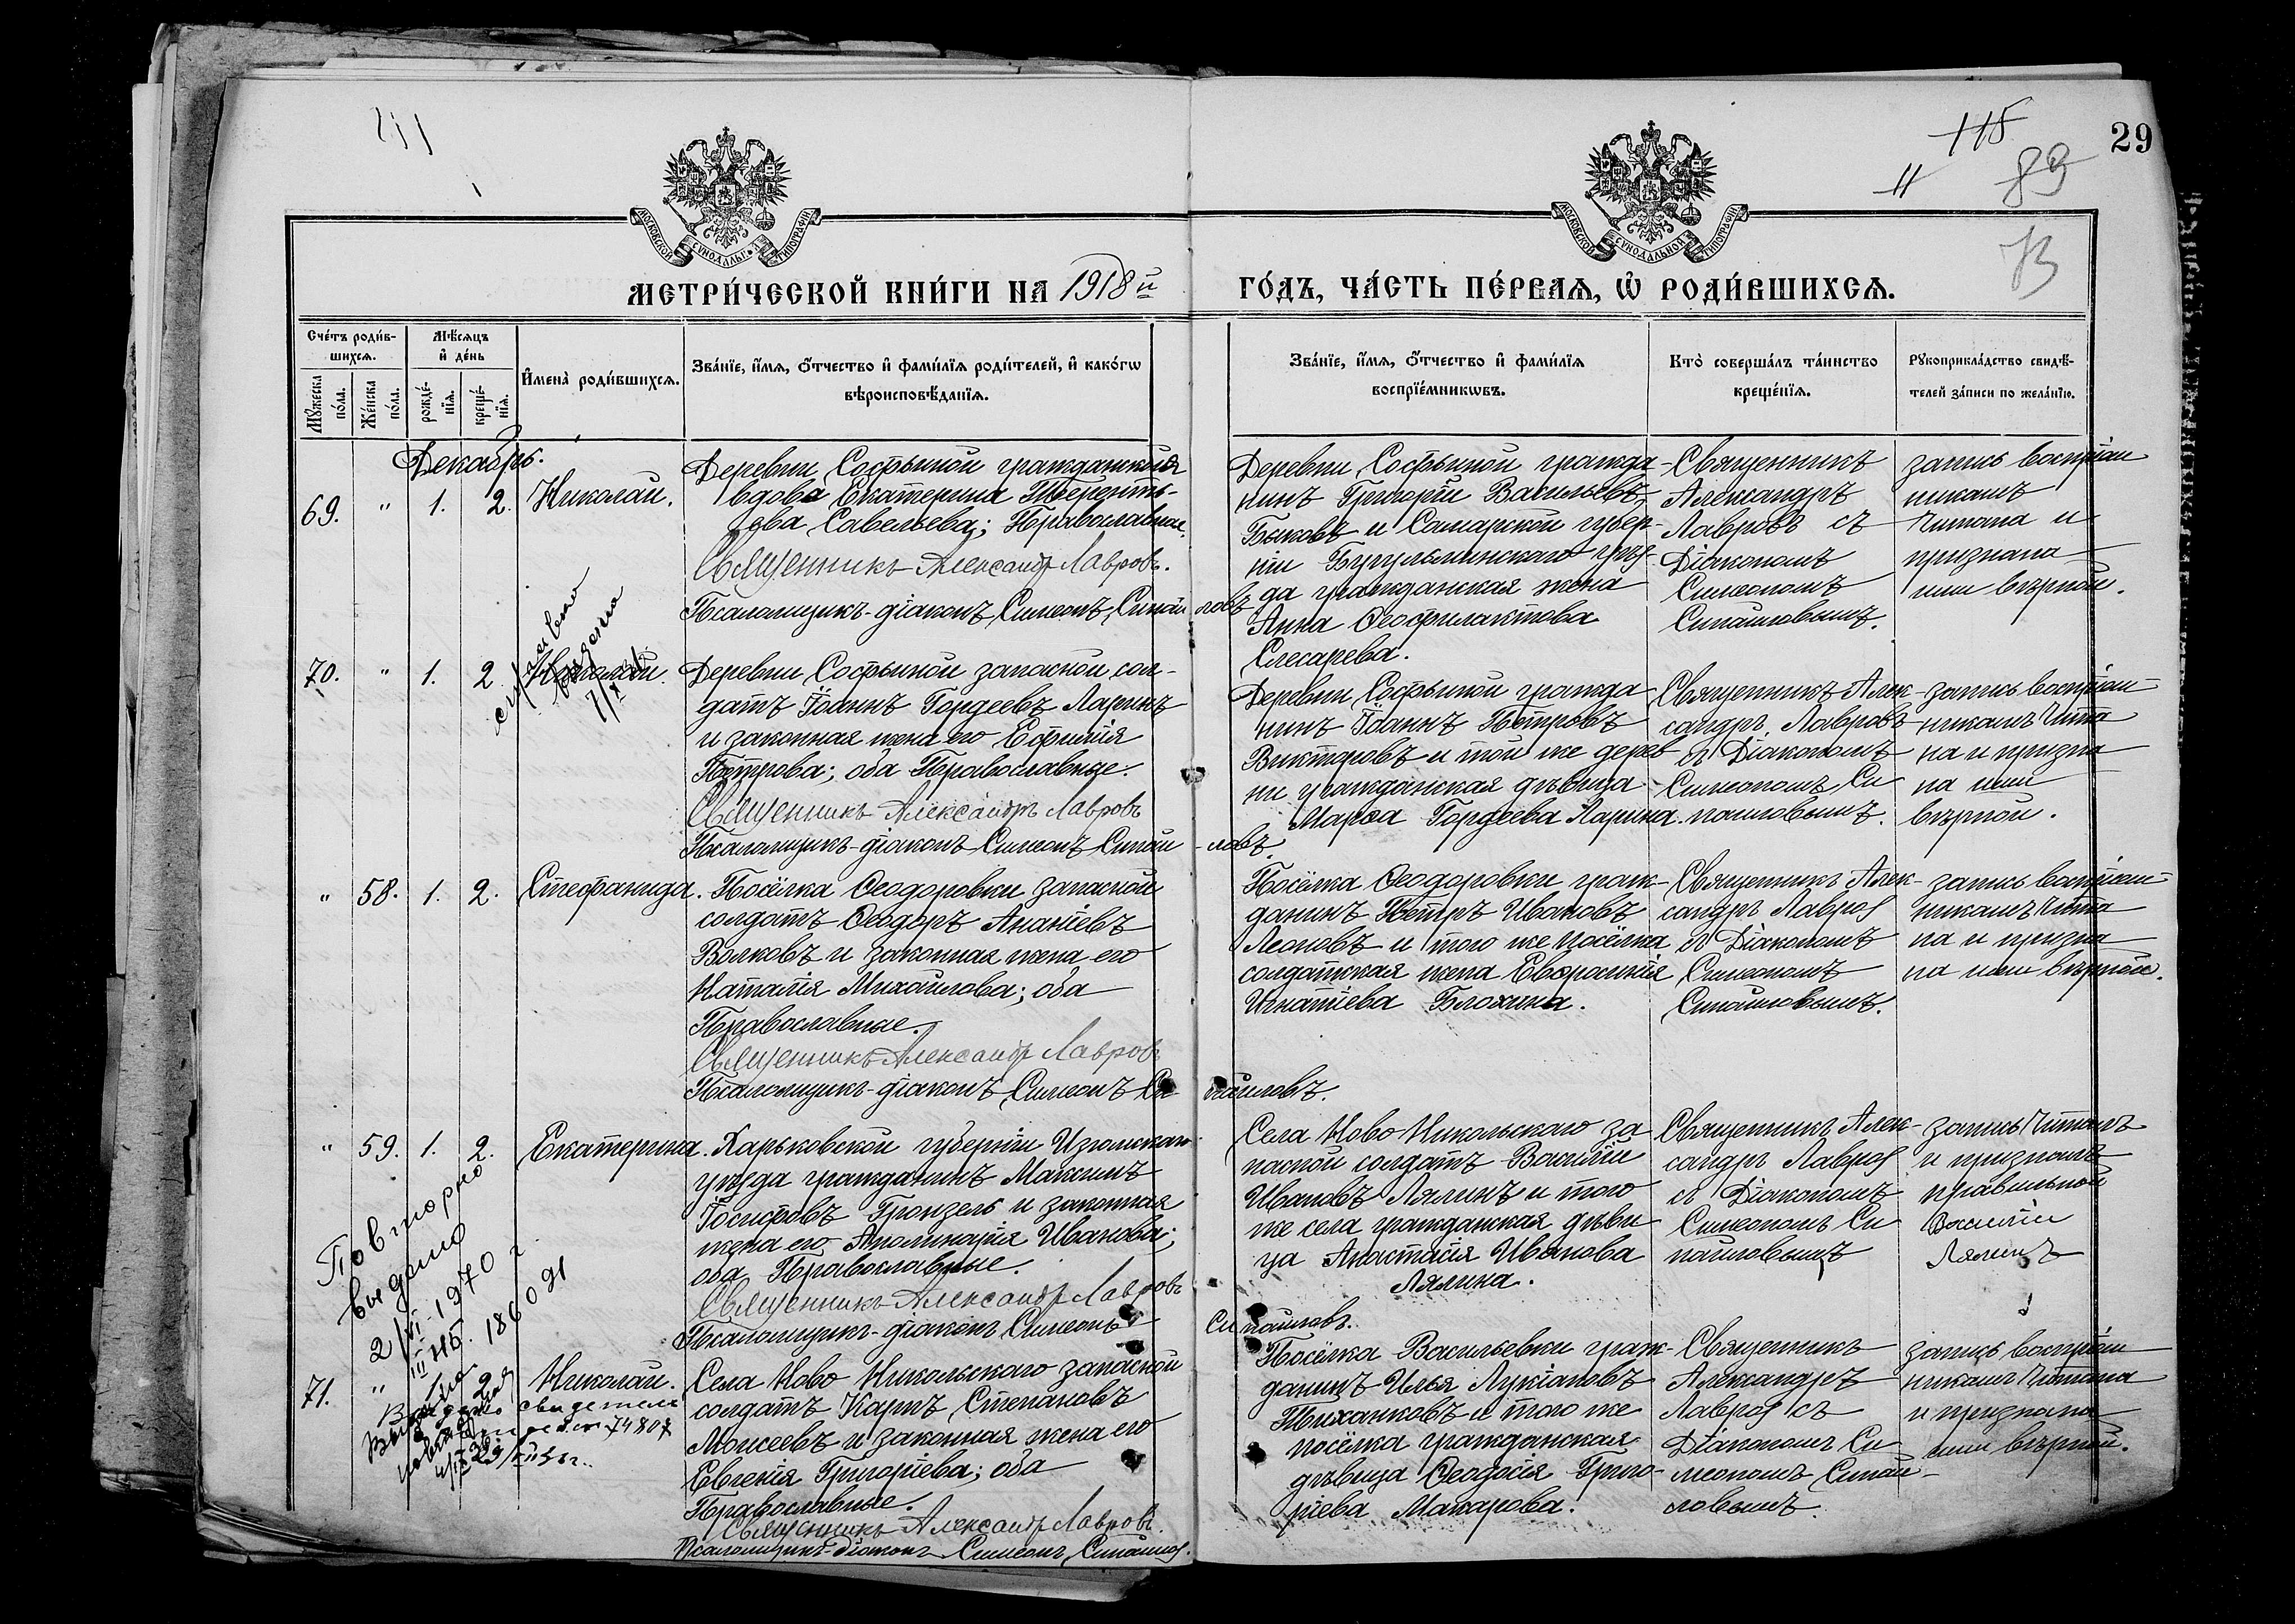 115
29
11
89
МОСКОВСКОЙ СѴНОДАЛЬНОЙ ТИПОГРАФІИ
МОСКОВСКОЙ СѴНОДАЛЬНОЙ ТИПОГРАФІИ
МЕТРИ́ЧЕСКОЙ КНИ́ГИ НА 1918 й
ГО́ДЪ, ЧА́СТЬ ПЕ́РВАѦ, Ѡ РОДИ́ВШИХСѦ.
Сче́тъ роди́в-
шихсѧ.
Мꙋжеска
по́ла.
Же́нска
по́ла.
Мѣ́сѧцъ
и҆ де́нь
рожде́-
нїѧ.
креще́-
нїѧ.
И҆мена̀ роди́вшихсѧ.
Зва́нїе, и҆́мѧ, ѻ҆́тчество и҆ фами́лїѧ роди́телей, и҆ како́гѡ
вѣроисповѣ́данїѧ.
Зва́нїе, и҆́мѧ, ѻ҆́тчество и҆ фами́лїѧ
воспрїе́мникѡвъ.
Кто̀ соверша́лъ та́инство
креще́нїѧ.
Рꙋкоприкла́дство свидѣ́-
телей за́писи по жела́нїю.
Декабрь.
69. " 1. 2. Николай.
Деревни Софьиной гражданская
вдова Екатерина Терентье-
ва Савельева; Православная.
Священникъ Александръ Лавровъ.
Псаломщикъ-діаконъ Симеонъ Синайловъ
Деревни Софьиной гражда-
нинъ Григорій Васильевъ
Быковъ и Самарской губер-
ніи Бугульминскаго уѣз-
да гражданская жена
Анна Ѳеофилактова
Слесарева.
Священникъ
Александръ
Лавровъ съ
Діакономъ
Симеономъ
Синайловымъ.
запись воспріем
никамъ
читана и
признана
ими вѣрной.
70. " 1. 2. Николай.
Деревни Софьиной запасной сол-
датъ Іоаннъ Гордеевъ Ларинъ
и законная жена его Ефимія
Петрова; оба Православные.
Священникъ Александръ Лавровъ
Псаломщикъ-діаконъ Симеонъ Синай-ловъ.
Деревни Софьиной гражда
нинъ Іоаннъ Петровъ
Викторовъ и той же дерев
ни гражданская дѣвица
Марѳа Гордеева Ларина.
Священникъ Алек-
сандръ Лавровъ
съ Діакономъ
Симеономъ Си
найловымъ.
запись воспріем-
никамъ чита
на и призна
на ими
вѣрной.
" 58. 1. 2. Стефанида.
Посёлка Ѳеодоровки запасной
солдатъ Ѳеодоръ Ананіевъ
Волковъ и законная жена его
Наталія Михайлова; оба
Православные.
Священникъ Александръ Лавровъ
Псаломщикъ-діаконъ Симеонъ Си-найловъ.
Посёлка Ѳеодоровки граж-
данинъ Петръ Ивановъ
Леоновъ и того же посёлка
солдатская жена Евфросинія
Игнатіева Блохина.
Священникъ Алек-
сандръ Лавровъ
съ Діакономъ
Симеономъ
Синайловымъ.
запись воспріем-
никамъ чита
на и призна
на ими вѣрной.
" 59. 1. 2. Екатерина.
Харьковской губерніи Изюмскаго
уѣзда гражданинъ Максимъ
Іосифовъ Гронзель и законная
жена его Аполинарія Иванова;
оба Православные.
Священникъ Александръ Лавровъ
Псаломщикъ-діаконъ Симеонъ Синайловъ.
Села Ново Никольскаго за
пасной солдатъ Василій
Ивановъ Лялинъ и того
же села гражданская дѣви
ца Анастасія Иванова
Лялина.
Священникъ Алек-
сандръ Лавровъ
съ Діакономъ
Симеономъ Си
найловымъ
запись читалъ
и призналъ
правильной
Василій
Лялинъ
Повторно
выдано
2/VI-1970 г.
186091
71. " 1. 2. Николай.
свидетель
74807
Села Ново Никольскаго запасной
солдатъ Карпъ Степановъ
Моисеевъ и законная жена его
Евгенія Григоріева; оба
Православные.
Священникъ Александръ Лавровъ.
Псаломщикъ-діаконъ Симеонъ Синайлов.
Посёлка Васильевки граж-
данинъ Илья Лукіановъ
Тиханковъ и того же
посёлка гражданская
дѣвица Ѳеодосія Григо-
ріева Макарова.
Священникъ
Александръ
Лавровъ съ
Діакономъ Си
меономъ Синай-
ловымъ.
запись воспріем
никамъ читана
и признана
ими вѣрной.